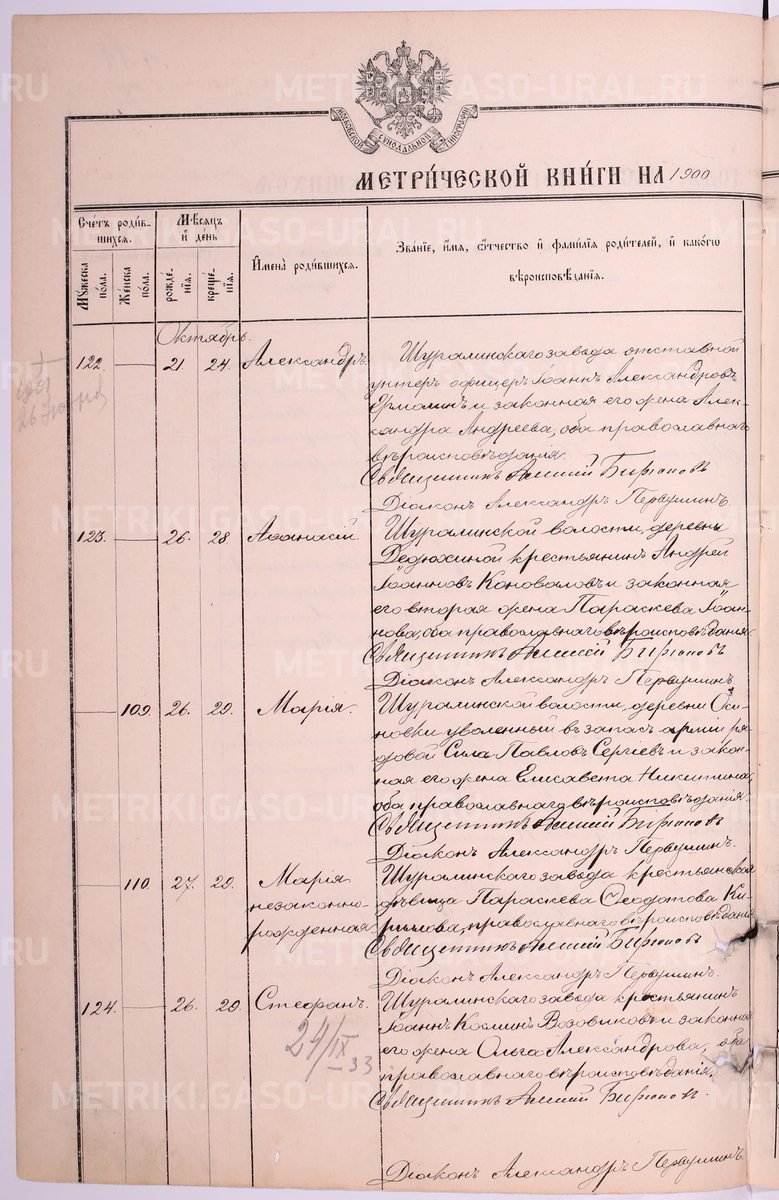 МОСКОВСКОЙ СѴНОДАЛЬНОЙ ТИПОГРАФІИ
МЕТРИЧЕСКОЙ КНИГИ НА 1900
Счетъ родив-
шихся.
Мужеска
пола.
Женска
пола.
Мѣсяцъ
и день
рожде-
нія.
креще-
нія.
Имена родившихся.
Званіе, имя, отчество и фамилія родителей, и какого
вѣроисповѣданія.
Октябрь.
122. 21 24. Александръ. Шуралинскаго завода отставной
унтеръ офицеръ Іоаннъ Александровъ
Ермалинъ и законная его жена Алек-
сандра Андреева, оба православнаго
вѣроисповѣданія.
Священникъ Алексій Бирюковъ
Діаконъ Александръ Первушинъ.
123. 26. 28. Аѳанасій. Шуралинской волости, деревни
Дедюхиной крестьянинъ Андрей
Іоанновъ Коноваловъ и законная
его вторая жена Параскева Іоан-
нова, оба православнаго вѣроисповѣданія.
Священникъ Алексій Бирюковъ
Діаконъ Александръ Первушинъ.
109. 26. 29. Марія. Шуралинской волости, деревни Оси-
новки уволенный въ запасъ арміи ря-
довой Сила Павловъ Сергѣевъ и закон-
ная его жена Елисавета Никитина,
оба православнаго вѣроисповѣданія.
Священникъ Алексій Бирюковъ
Діаконъ Александръ Первушинъ.
110. 27. 29. Марія
незаконно-
рожденная. Шуралинскаго завода крестьянская
дѣвица Параскева Ѳеодотова Ки-
рилова, православнаго вѣроисповѣданія.
Священникъ Алексій Бирюковъ
Діаконъ Александръ Первушинъ.
124. 26. 29. Стефанъ. Шуралинскаго завода крестьянинъ
Іоаннъ Космин Возовиковъ и законная
его жена Ольга Александрова, оба
православнаго вѣроисповѣданія.
24/IX
–33
Священникъ Алексій Бирюковъ.
Діаконъ Александръ Первушинъ.
METRIKI.GASO-URAL.RU